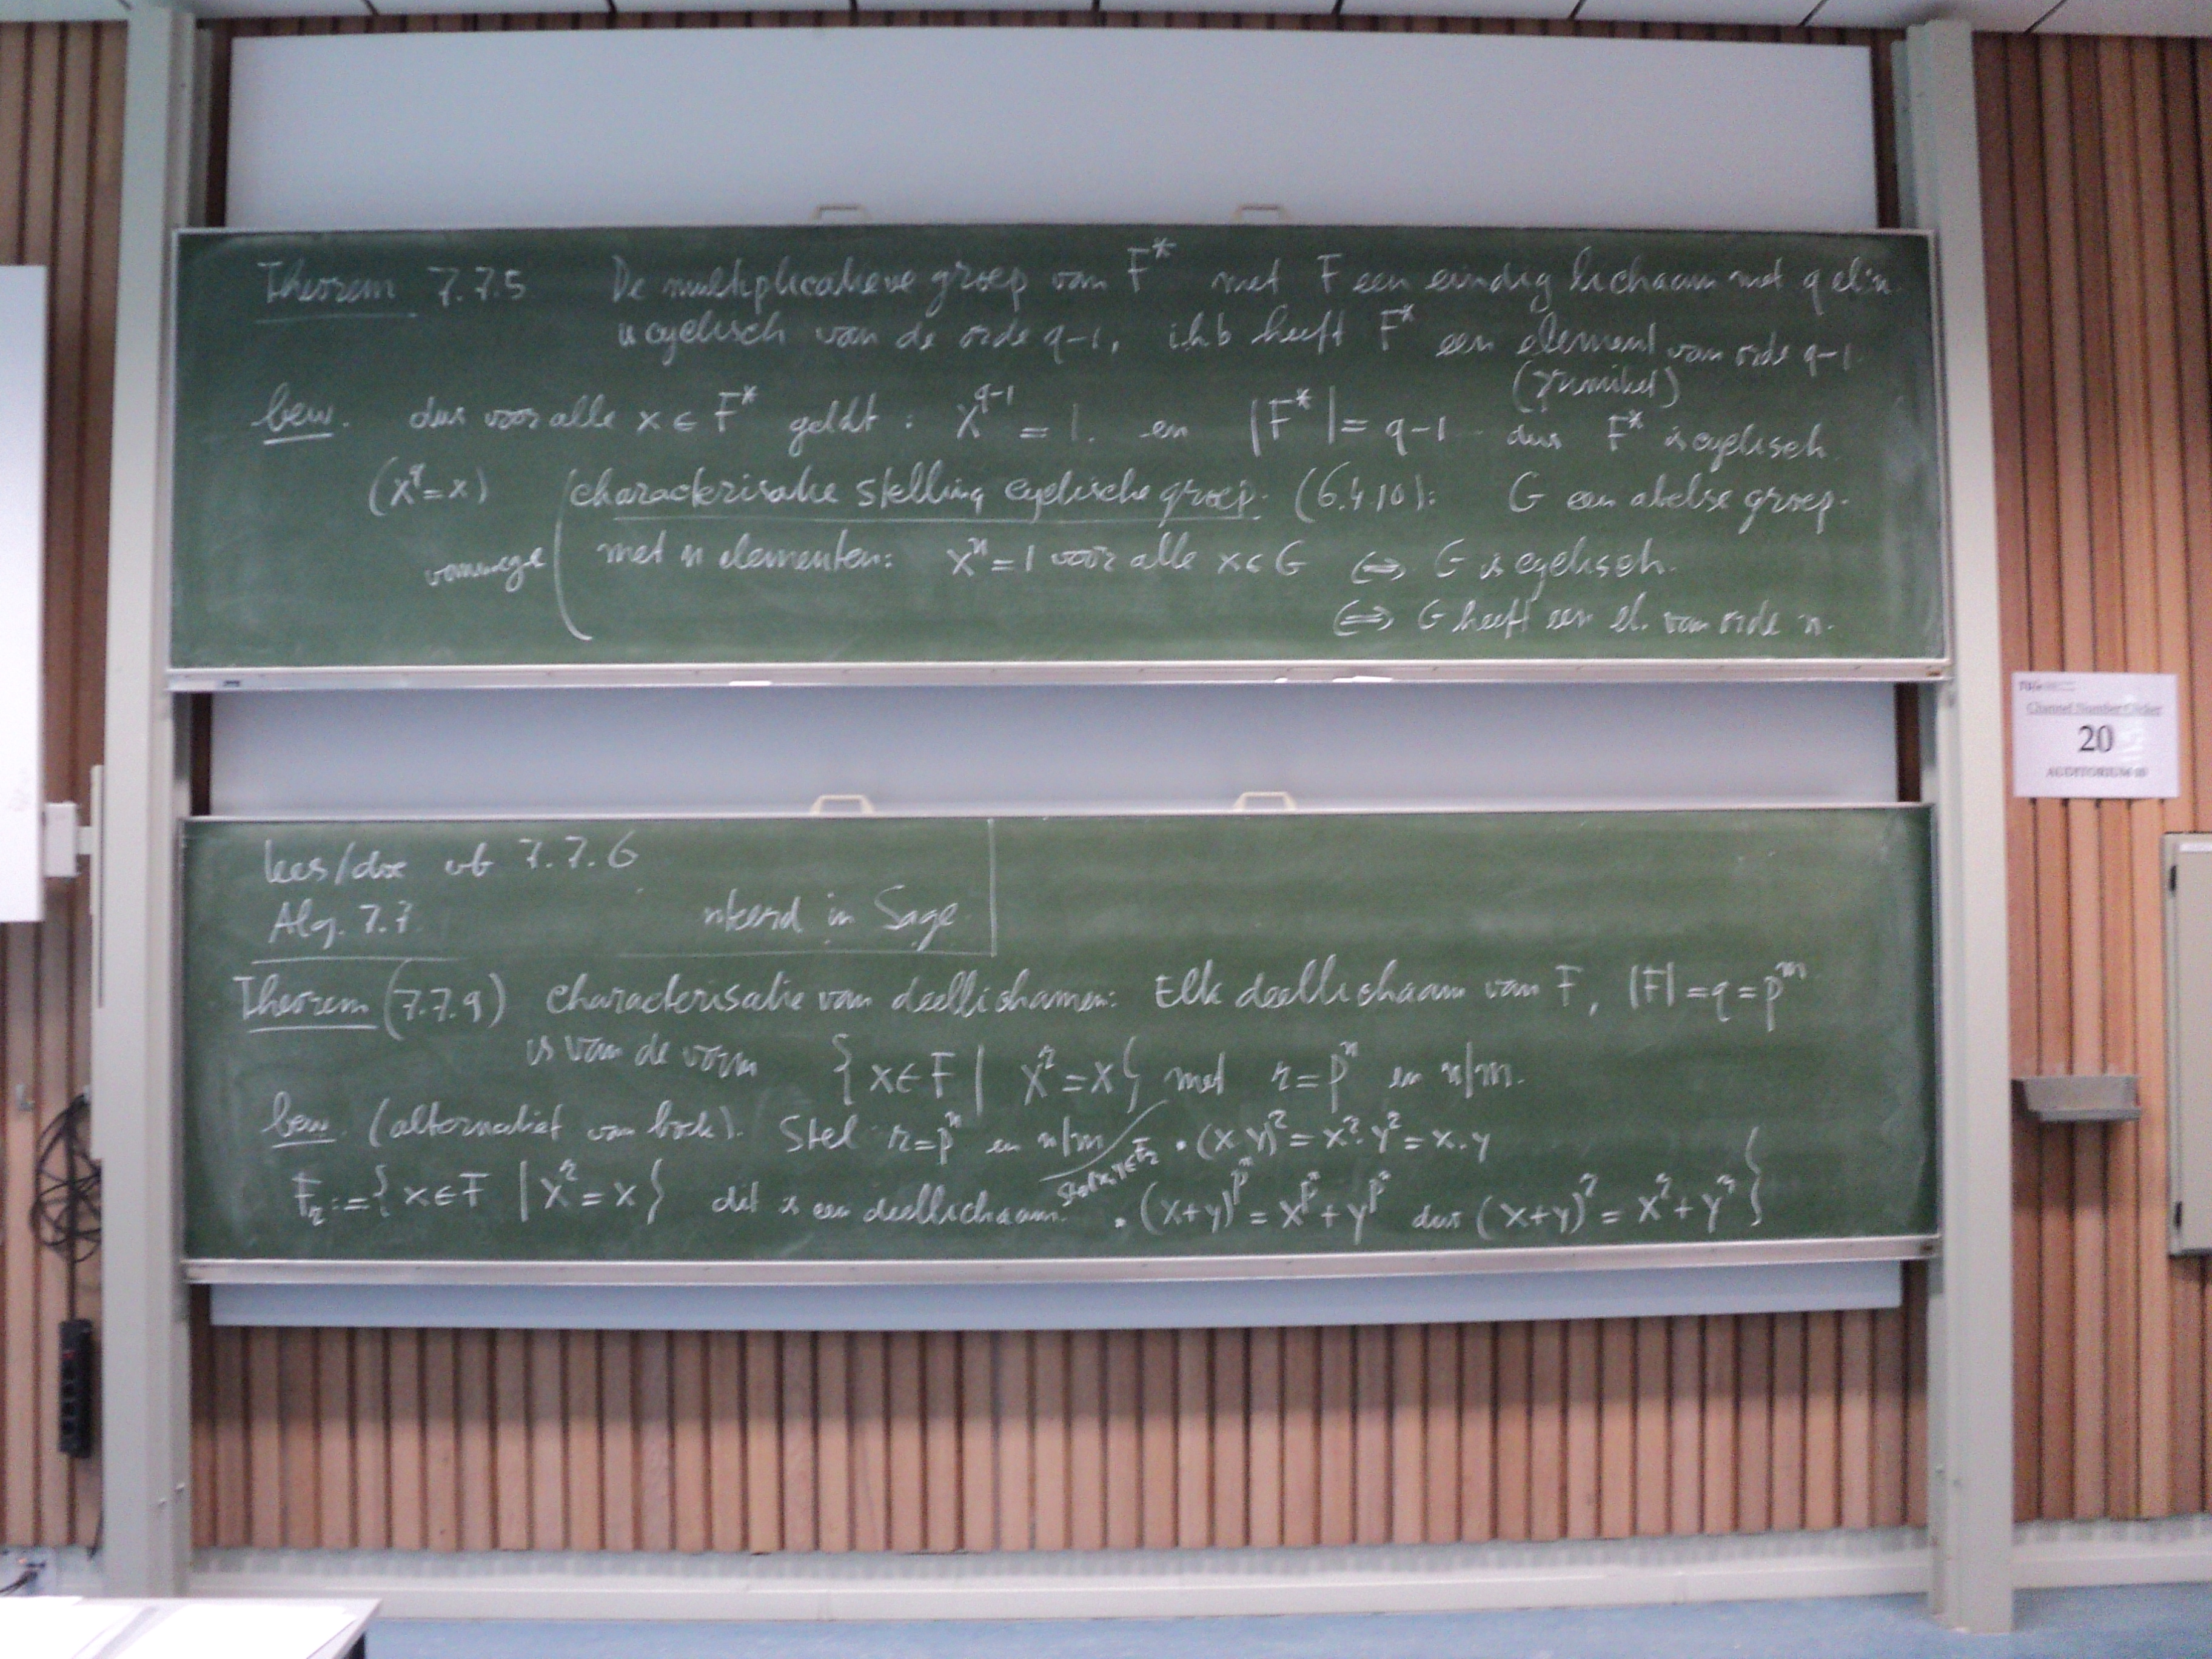 Theorem 7.7.5 De multiplicatieve groep van F* met F een eindig lichaam met q el'n
is cyclisch van de orde q-1, ihb heeft F* een element van orde q-1
(primitief)
bew. dus voor alle x ∈ F* geldt: x^{q-1} = 1. en |F*| = q-1 dus F* is cyclisch.
(x^q = x) (characterisatie stelling cyclische groep. (6.4.10): G een abelse groep.
vanwege met n elementen: x^n = 1 voor alle x ∈ G ⇔ G is cyclisch.
⇔ G heeft een el. van orde n.
Channel Number Clicker
20
AUDITORIUM
lees/doe vb 7.7.6
Alg. 7.7. in Sage.
Theorem (7.7.9) characterisatie van deellichamen: Elk deellichaam van F, |F| = q = p^m
is van de vorm {x ∈ F | x^r = x} met r = p^n en n|m.
bew. (alternatief van boek). Stel r = p^n en n|m · (x y)^r = x^r · y^r = x · y
F_r := {x ∈ F | x^r = x} dit is een deellichaam. Stel x, y ∈ F_r · (x+y)^{p^n} = x^{p^n} + y^{p^n} dus (x+y)^r = x^r + y^r }